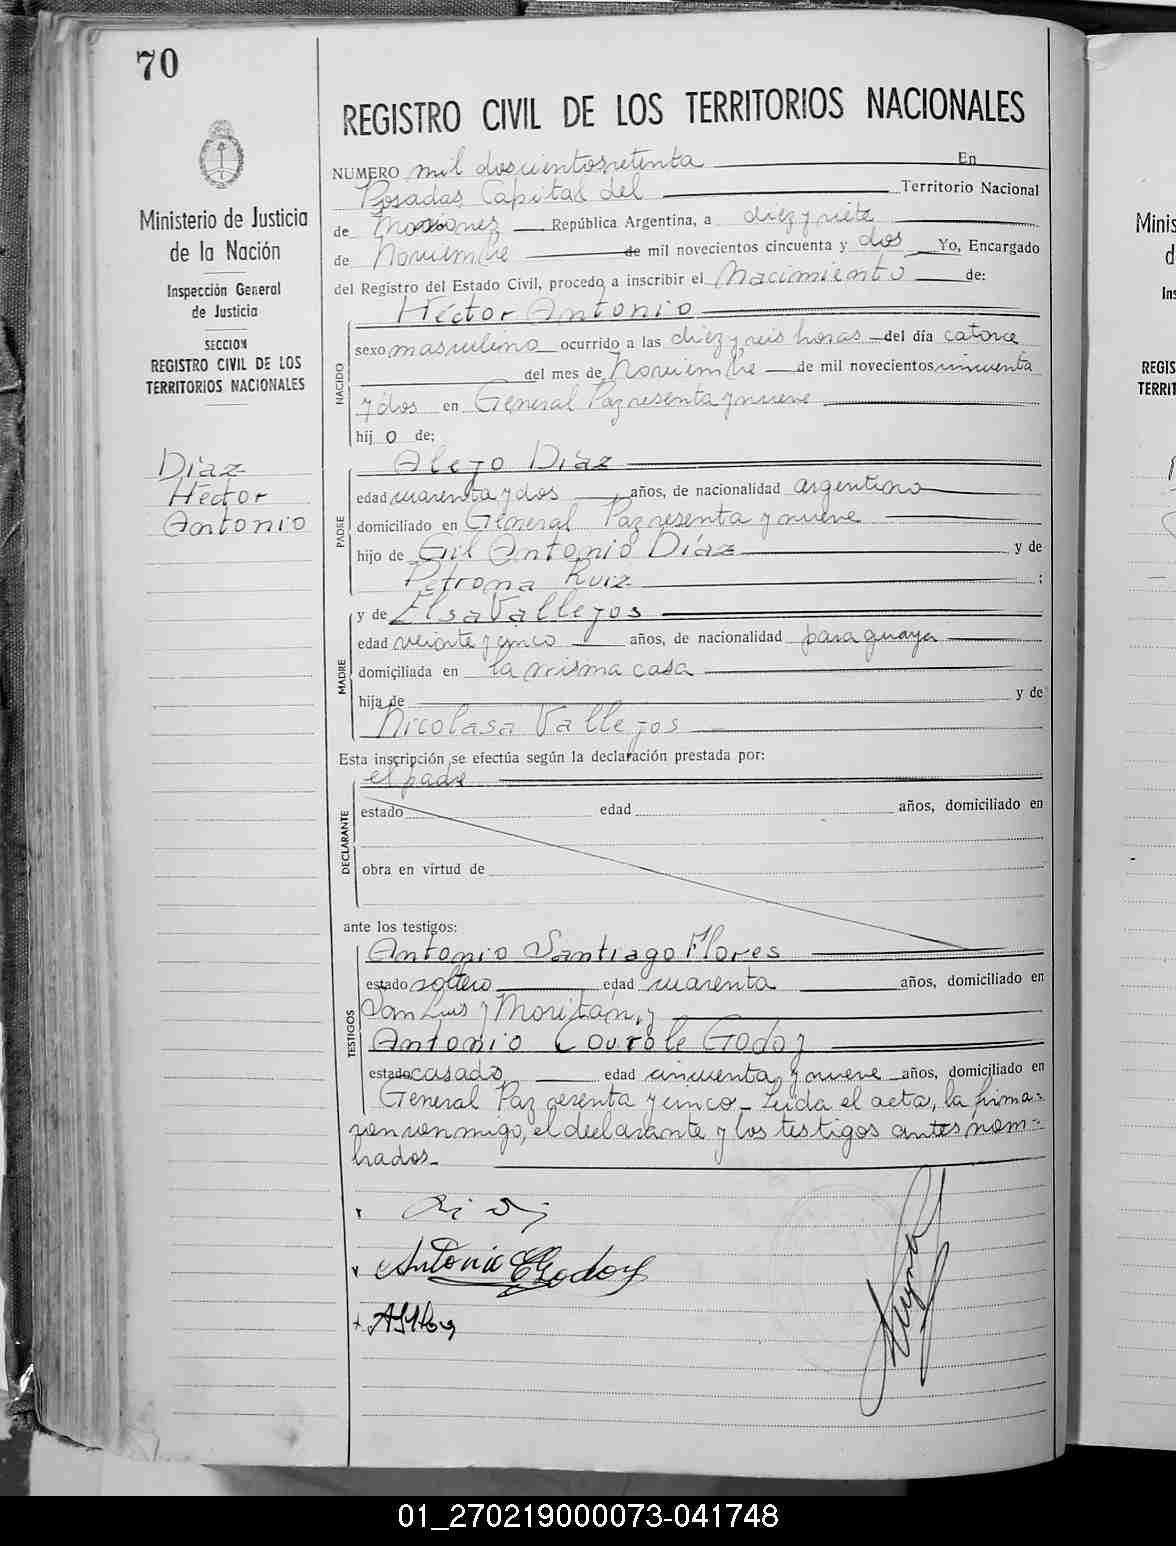 70
REGISTRO CIVIL DE LOS TERRITORIOS NACIONALES
Ministerio de Justicia
de la Nación
Inspección General
de Justicia
SECCION
REGISTRO CIVIL DE LOS
TERRITORIOS NACIONALES
Díaz
Héctor
Antonio
NUMERO mil doscientos setenta En
Posadas Capital del Territorio Nacional
de Misiones República Argentina, a diez y siete
de Noviembre de mil novecientos cincuenta y dos Yo, Encargado
del Registro del Estado Civil, procedo a inscribir el Nacimiento de:
NACIDO
Héctor Antonio
sexo masculino ocurrido a las diez y seis horas del día catorce
del mes de Noviembre de mil novecientos cincuenta
y dos en General Paz sesenta y nueve
hij o de:
PADRE
Alejo Díaz
edad cuarenta y dos años, de nacionalidad argentino
domiciliado en General Paz sesenta y nueve
hijo de Gil Antonio Díaz y de
Petrona Ruiz :
MADRE
y de Elsa Vallejos
edad veinte y cinco años, de nacionalidad paraguaya
domiciliada en la misma casa
hija de y de
Nicolasa Vallejos
Esta inscripción se efectúa según la declaración prestada por:
DECLARANTE
el padre
estado edad años, domiciliado en
obra en virtud de
ante los testigos:
TESTIGOS
Antonio Santiago Flores
estado soltero edad cuarenta años, domiciliado en
San Luis y Moritán, y
Antonio Godoy
estado casado edad cincuenta y nueve años, domiciliado en
General Paz sesenta y cinco - Leída el acta, la firma-
ron conmigo, el declarante y los testigos antes nom-
brados.
Antonio C Godoy
Minis
d
Ins
REGIS
TERRIT
01_270219000073-041748